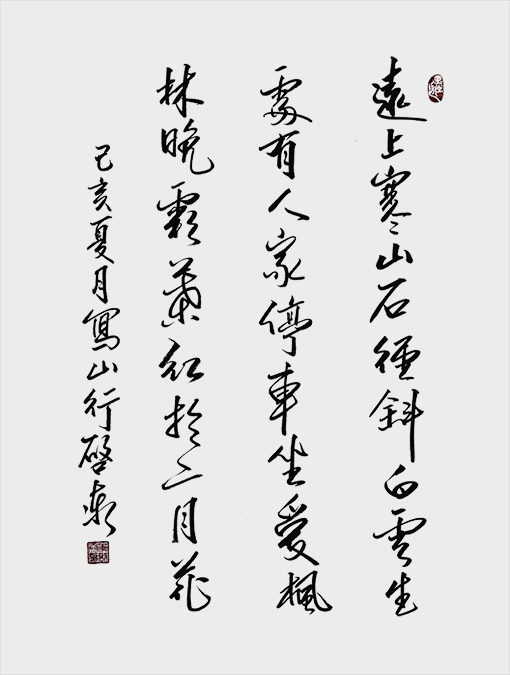 遠上寒山石徑斜白雲生
處有人家停車坐愛楓
林晚霜葉紅於二月花
己亥夏月寫山行啓